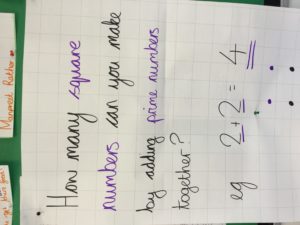 How many square
numbers can you make
by adding prime numbers
together?
eg 2 + 2 = 4
Manpreet